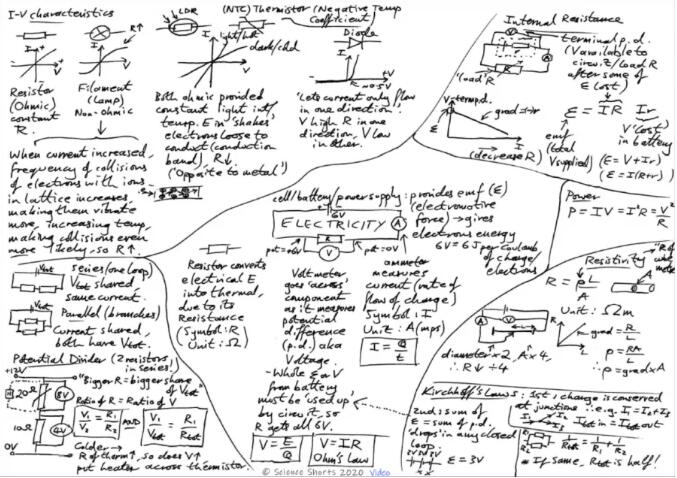 I-V characteristics
R↑
I
V
Resistor
(Ohmic)
constant
R.
Filament
(Lamp)
Non-ohmic
When current increased,
frequency of collisions
of electrons with ions
in lattice increases,
making them vibrate
more, increasing temp,
making collisions even
more likely, so R↑.
LDR
(NTC) Thermistor (Negative Temp
Coefficient)
light/hot
dark/cold
Both ohmic provided
constant light int/
temp. E in 'shakes'
electrons loose to
conduct (conduction
band), R↓
('Opposite to metal')
Diode
+V
≈0.5V
'Lets current only flow
in one direction'
V high R in one
direction, V low
in other.
Internal Resistance
terminal p.d.
(V available to
circuit/load R
after some of
E lost)
'load' R
V=term p.d.
grad = -r
(decrease R)
I
ε = IR + Ir
emf
(total
V supplied)
V 'lost'
in battery
(ε = V + Ir)
(ε = I(R+r))
cell/battery/power supply: provides emf (ε)
(electromotive
force) → gives
electrons energy
6V = 6 J per Coulomb
of charge/
electrons
6V
ELECTRICITY
A
R
V
pot=+6V
pot=0V
Resistor converts
electrical E
into thermal,
due to its
Resistance
(Symbol: R)
(Unit: Ω)
Voltmeter
goes 'across'
component
as it measures
potential
difference
(p.d.) aka
Voltage.
- Whole E or V
from battery
must be 'used up'
by circuit, so
R gets all 6V.
ammeter
measures
current (rate of
flow of charge)
Symbol: I
Unit: A(mps)
I = Q/t
V = E/Q
V = IR
Ohm's Law
Power
P = IV = I²R = V²/R
Resistivity
R = ρL/A
A
L
Unit: Ωm
R
grad = R/L
ρ = RA/L
∴ρ = grad x A
diameter x 2, A x 4,
∴ R ↓ ÷ 4
series/one loop
Vtot shared
same current.
Parallel (branches)
Current shared,
both have Vtot.
Potential Divider (2 resistors
in series!)
+12V
20Ω
8V
10Ω
4V
0V
"Bigger R = bigger share
of Vtot"
Ratio of R = Ratio of V
V₁/V₂ = R₁/R₂
AND
V₁/Vtot = R₁/Rtot
Colder →
R of therm↑, so does V↑
put heater across thermistor.
Kirchhoff's Laws: 1st, charge is conserved
at junctions ∴ e.g. I₁ = I₂ + I₃
I tot in = I tot out
2nd: sum of
ε = sum of p.d.
'drops' in any closed
loop
3V 3V 3V
ε = 3V
R₁
R₂
1/Rtot = 1/R₁ + 1/R₂
* If same, Rtot is half!
© Science Shorts 2020 Video